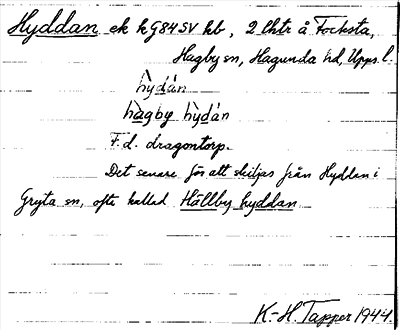 Hyddan ek kG84SV kb, 2 lhtr å Focksta,
Hagby sn, Hagunda hd, Upps. l.
hỳdán
hàgby hỳdán
F. d. dragontorp.
Det senare för att skiljas från Hyddan i
Gryta sn, ofta kallad Hällby hyddan
K-H. Tapper 1944.